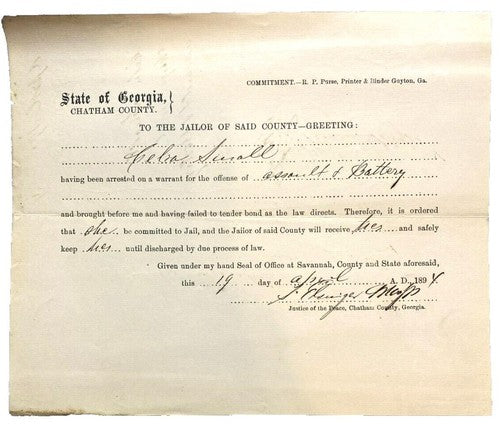 COMMITMENT.—R. P. Purse, Printer & Binder Guyton, Ga.
State of Georgia,
CHATHAM COUNTY.
TO THE JAILOR OF SAID COUNTY—GREETING:
Small
having been arrested on a warrant for the offense of assault & Battery
and brought before me and having failed to tender bond as the law directs. Therefore, it is ordered
that she be committed to Jail, and the Jailor of said County will receive her and safely
keep her until discharged by due process of law.
Given under my hand Seal of Office at Savannah, County and State aforesaid,
this 19 day of april A. D., 1894.
Justice of the Peace, Chatham County, Georgia.